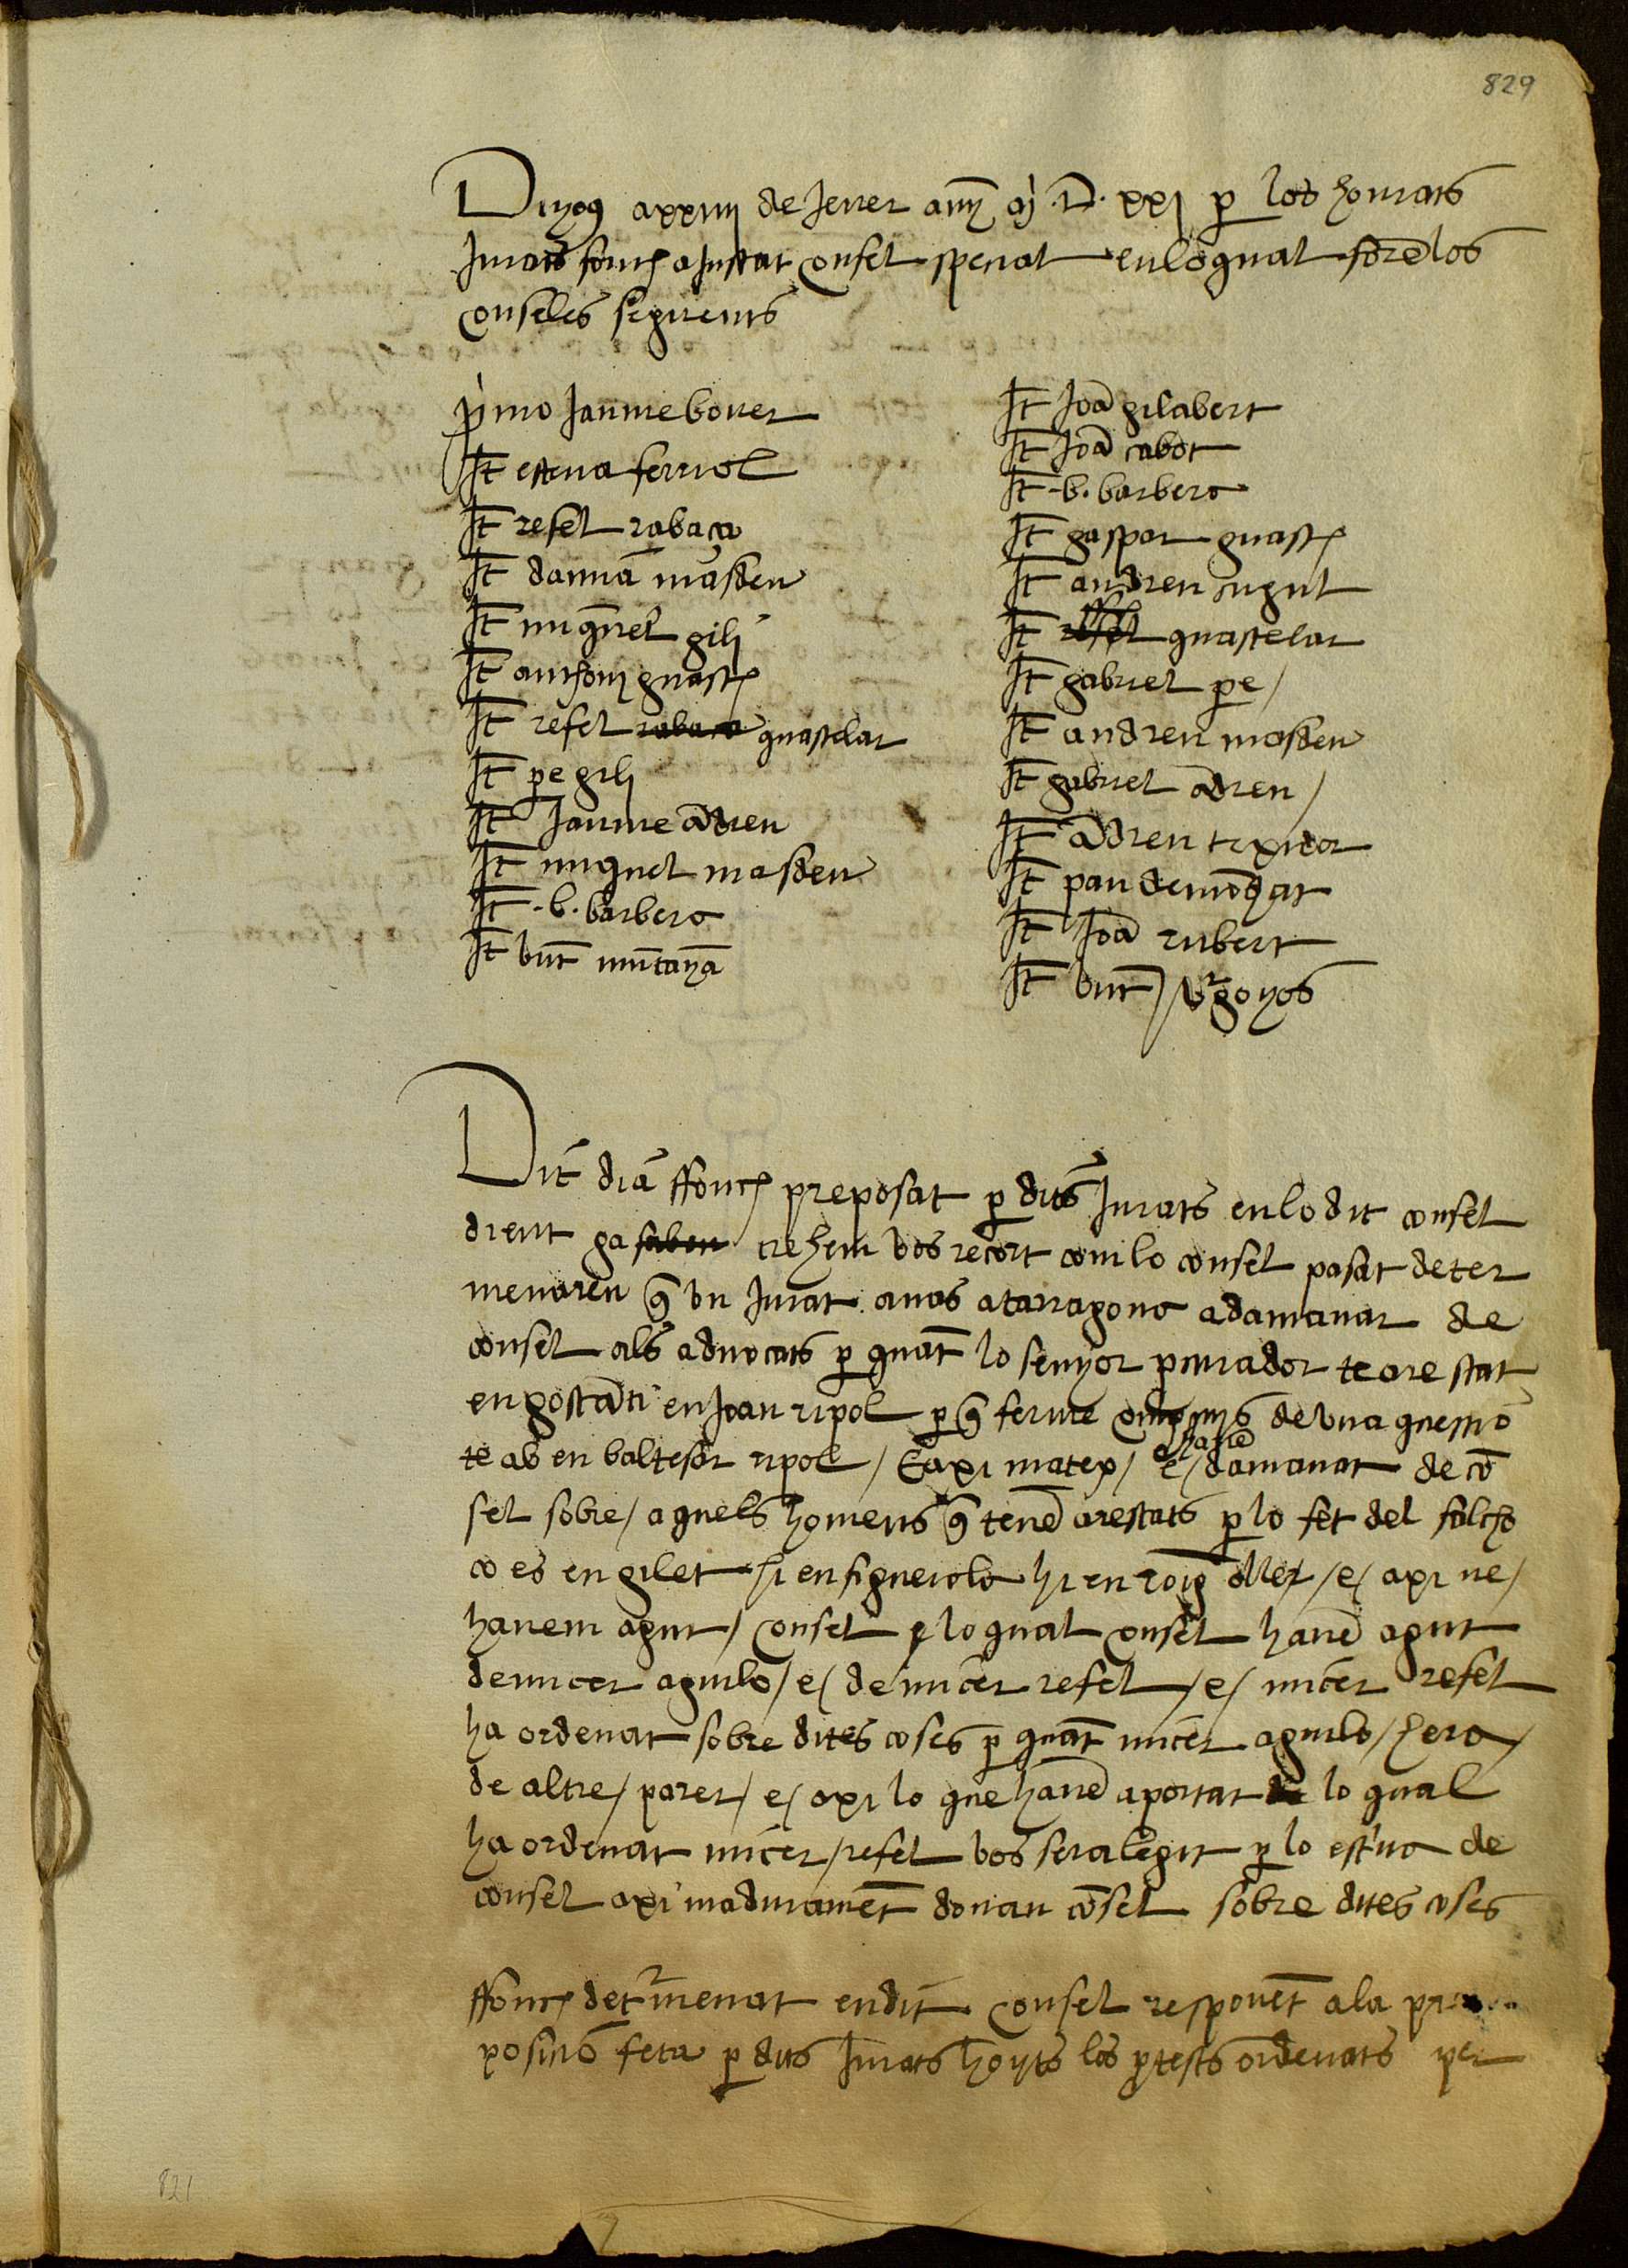 829
Dijous a xxiiij de Jener any M D xxj per los honrats
Jurats fonch aJustat consel special enloqual foren los
conseles seguents
primo Jaume bover
It esteva ferriol
It refel rabaça
It damià masdeu
It miquel gili
It anthoni guasch
It refel rabaça guastelar
It pe gili
It Jaume adreu
It miquel masdeu
It .b. barbera
It bnt muntanya
It Joã gilabert
It Joã cabot
It .b. barbera
It gaspar guasch
It andreu cugul
It guastelar
It gabriel pe
It andreu masdeu
It gabriel adreu
It adreu texidor
It pau demõtzar
It Joã rubert
It bnt burgoyos
Dit dia ffonch preposat per dits Jurats enlo dit consel
dient ga saben crehem vos recort com lo consel pasat deter
menaren que vn Jurat anas atarragona adamanar de
consel als aduocats per quant lo senyor procurador te arestat
en gostãti en Joan ripol per que ferme compromis de vna questio
te ab en baltesar ripol / E axi matex / e / damanar de cõ
sel sobre / aquels homens que tenẽ arestats per lo fet del falcho
co es en gilet hi en figuerola hi en roig oller / e / axi ne /
hauem agut / consel / lo qual consel hauẽ agut
de micer aguilo / e / de micer refel / e / micer refel
ha ordenat sobre dites coses per quant micer aguilo / hera /
de altre / parer / e / axi lo que hauẽ aportat lo qual
ha ordenat micer / refel vos sera legit per lo escriua de
consel axi madurament donau cõsel sobre dites coses
ffonch determenat en dit consel responent ala pre
posicio feta per dits Jurats hoyts los protests ordenats per
821